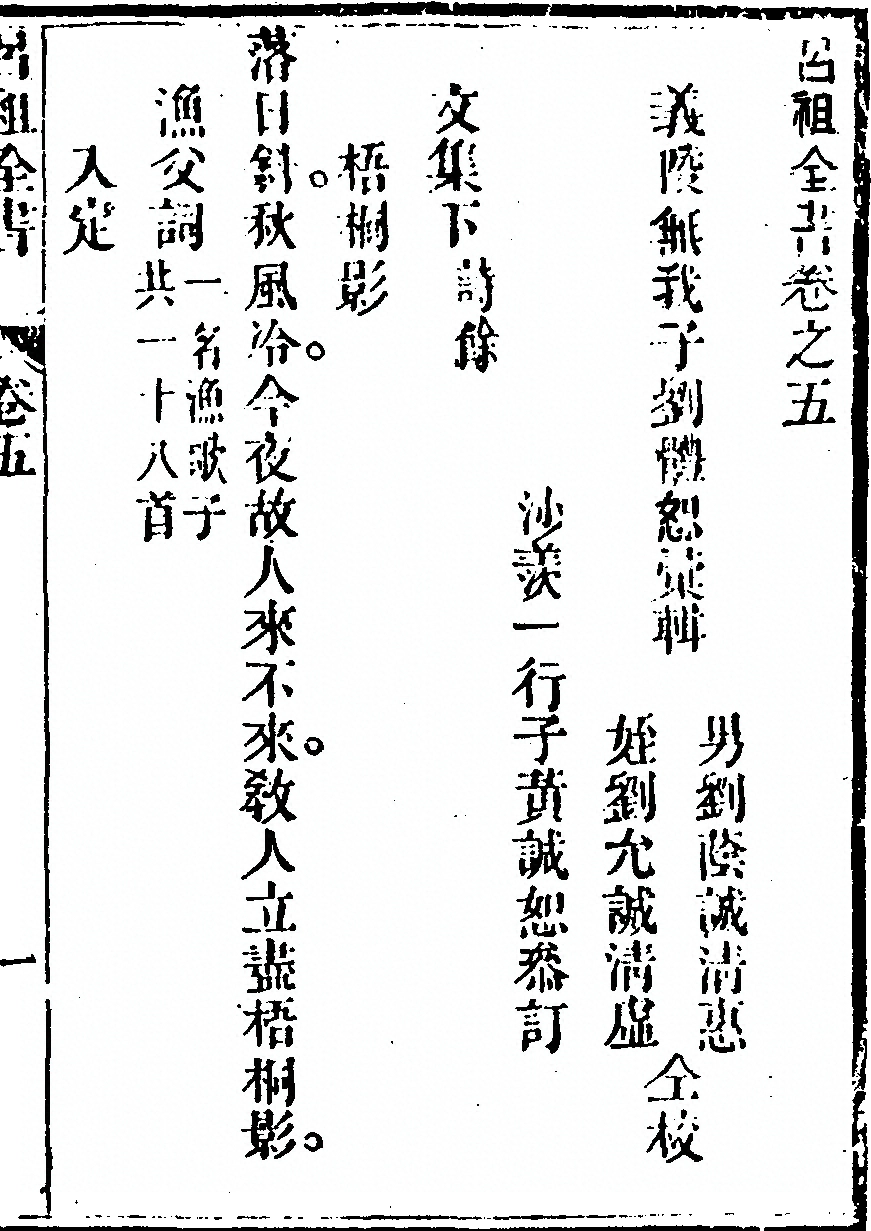 呂祖全書卷之五
義陵無我子劉體恕彙輯
男劉蔭誠清惠
姪劉允誠清虛
仝校
沙羨一行子黃誠恕叅訂
文集下 詩餘
梧桐影
落日斜。秋風冷。今夜故人來不來。敎人立盡梧桐影。
漁父詞 一名漁歌子
共一十八首
入定
呂祖全書 卷五 一